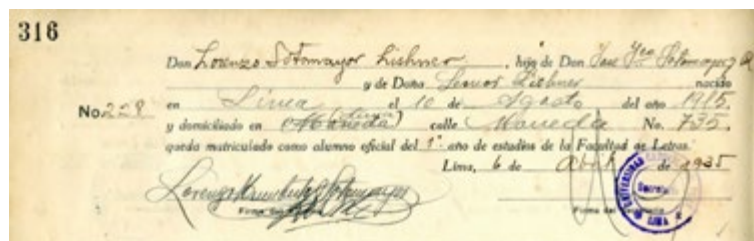 316
Don Lorenzo Sotomayor Lishner, hijo de Don José Sotomayor y
y de Doña Leonor Lishner nacido
No. 228 en Lima el 10 de Agosto del año 1915,
y domiciliado en (Lima) calle Moneda No. 735,
queda matriculado como alumno oficial del 1er año de estudios de la Facultad de Letras.
Lima, 6 de Abril de 1935
Lorenzo Sotomayor
Firma del
Firma del
UNIVERSIDAD
Secretaría
LIMA